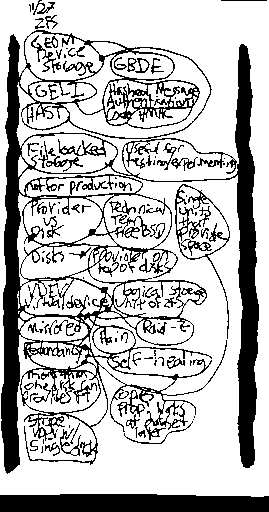 11/27
ZFS
GEOM
Device
Storage
GBDE
GELI
Hashed Message
Authentication
Code HMAC
HAST
File backed
Storage
Used for
testing/experimenting
not for production
Provider
vs
Disk
Technical
Term
FreeBSD
Single
units
that
Provide
Space
Disks
Provider on
top of disks
VDEV
Virtual device
Logical storage
unit of ZFS
mirrored
Main
Raid-Z
Redundancy
Self-healing
more than
one disk can
provide it
Stripe
VDEV w/
Single disk
at
layer